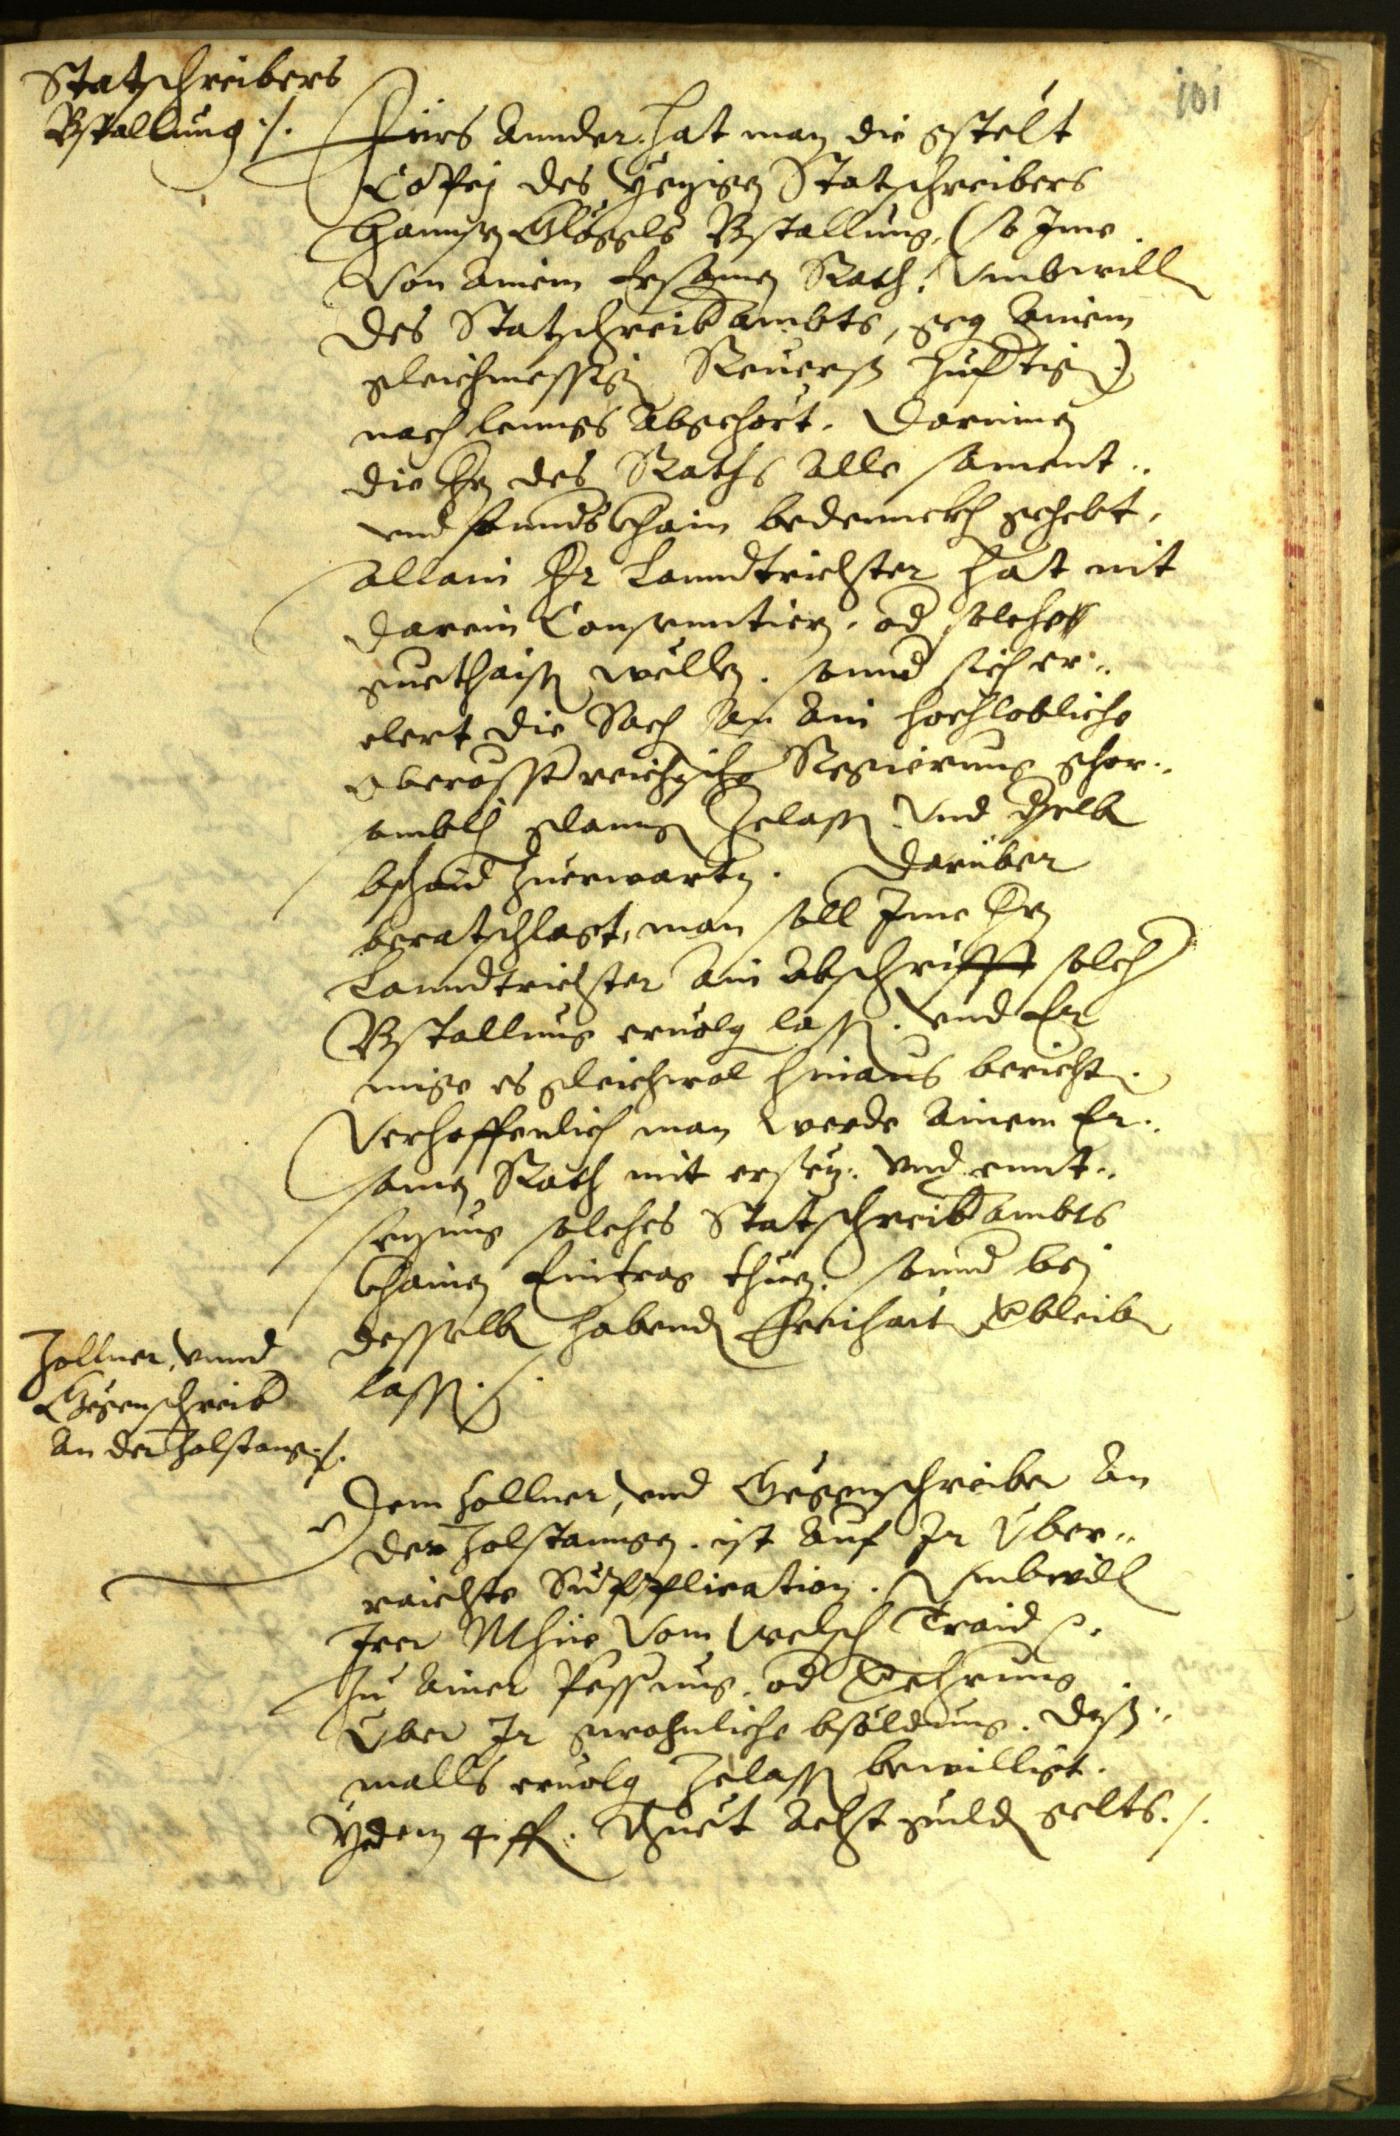 101
Statschreibers
Bstallung ./.
Fürs Annder hat man die gstelt
Copej des yezigen Statschreibers
Hannsen Glöggls Bstallung, (so Ime
Von ainem Ersamen Rath, Vmbwillen
des Statschreiberambts, gegen ainem
gleichmessigen Reuerß zuferttigen)
nach lenngs abgehört. Darinnen
die Hern des Raths alle sament
vnd sonnders khain bedennckhen gehebt,
allain Hr Lanndtrichter hat nit
darein Consenntiern, oder solches
guethaissen wellen. sonnder sich er„
clert die Sach an ain hochlobliche
oberösstereichische Regierung gehor„
samblich glanngen zelassen. Vnd derselben
bschaid zuerwarten. Darüber
beratschlagt, man soll Ime Hrn
Lanndtrichter ain abschrifft solcher
Bstallung eruolgen lassen. vnd Er
müge es gleichwol hinaus berichten.
Verhoffenlich man werde ainem Er„
samen Rath mit ersez: vnd ennt„
sezung solches Statschreiberambts
khainen Eintrag thuen. sonnder bej
desselben habenden Freihait verbleiben
lassen ./.
Zollner, vnnd
Gegenschreiber
an der Zolstang ./.
Dem Zollner, vnd Gegenschreiber an
der Zolstanngen. ist auf Ir Vber„
raichte Supplication. Vmbwillen
Irer Mhüe Vom welschen Traid ec.
Zu ainer Pesserung. oder Verehrung
Vber Ir gwohnliche bsöldung. diß„
malls eruolgen zelassen bewilligt.
Yedem 4. fl. Thuet acht gulden gelts ./.